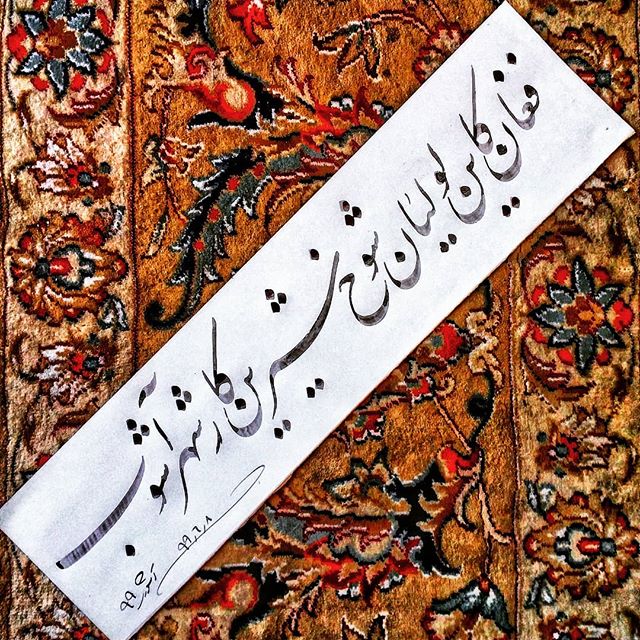 فغان کاین لولیان شوخ شیرین کار شهر آشوب
۹۹.۲.۸